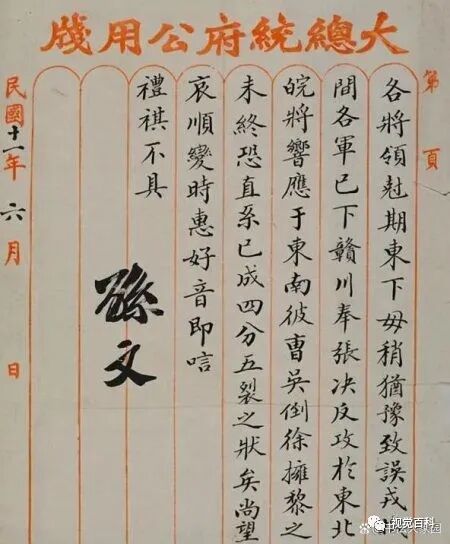 大總統府公用牋
第 頁
各將領尅期東下毋稍猶豫致誤戎
間各軍已下贛川奉張决反攻於東北
皖將響應于東南彼曹吳倒徐擁黎之
未終恐直系已成四分五裂之狀矣尚望
哀順變時惠好音即唁
禮祺不具
孫文
民國十一年六月 日
视觉百科